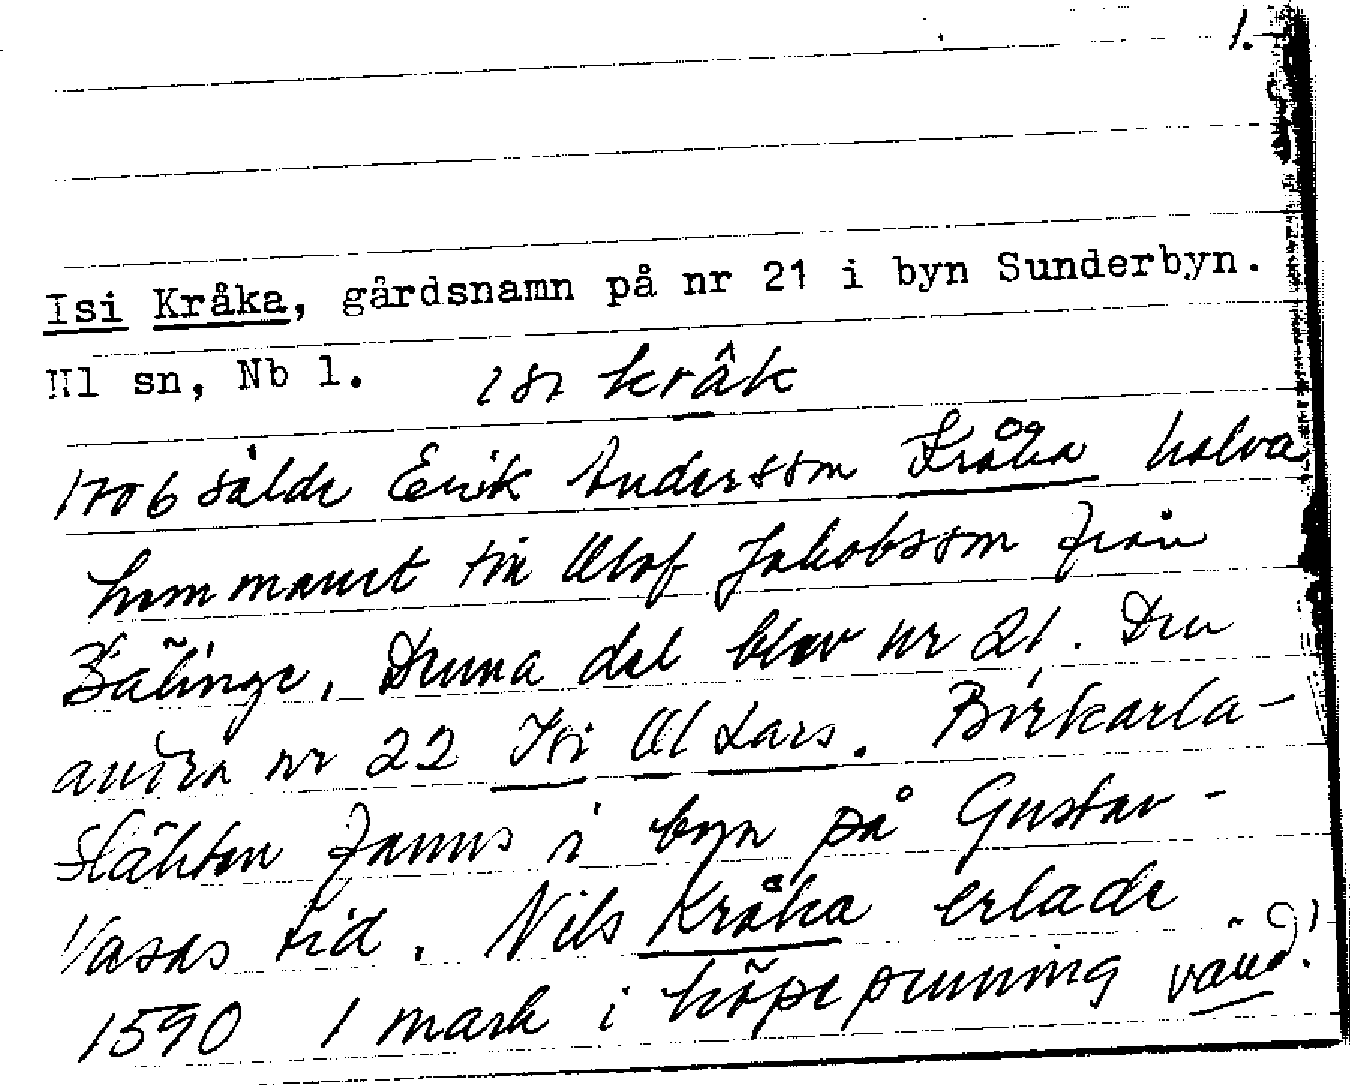 1.
Isi Kråka, gårdsnamn på nr 21 i byn Sunderbyn.
Nl sn, Nb l. isi kråk
1706 sålde Erik Andersson Kråka halva
hemmanet till Olof Jakobsson från
Bälinge. Denna del blev nr 21. Den
andra nr 22 Isi Ol Lars. Birkarla-
släkten fanns i byn på Gustav-
Vasas tid. Nils Kråka erlade
1590 1 mark i köpepenning vänd!